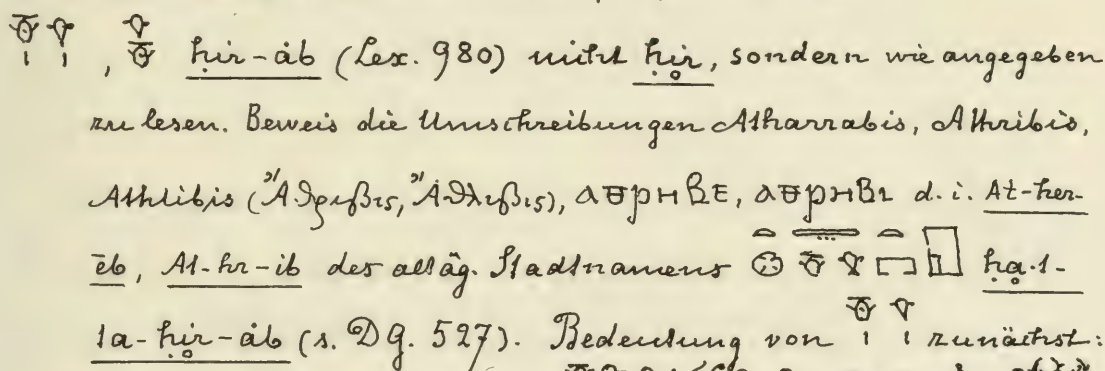 , ḥir-áb (Lex. 980) nicht ḥir, sondern wie angegeben
zu lesen. Beweis die Umschreibungen Atharrabis, Athribis,
Athlibis (Ἄθριβις, Ἄθλιβις), ⲁⲑⲣⲏⲃⲉ, ⲁⲑⲣⲏⲃⲓ d. i. At-her-
ēb, At-hr-ib des altäg. Stadtnamens ḥa.t-
ta-ḥir-áb (s. DG. 527). Bedeutung von zunächst: